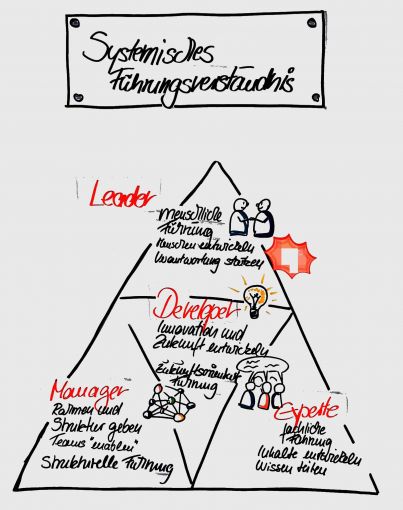 Systemisches
Führungsverständnis
Leader
Menschliche
Führung
Menschen entwickeln
Verantwortung stärken
Developer
Innovation und
Zukunft entwickeln
Zukunftsorientierte
Führung
Manager
Rahmen und
Struktur geben
Teams "enablen"
Strukturelle Führung
Experte
fachliche
Führung
Inhalte entwickeln
Wissen teilen